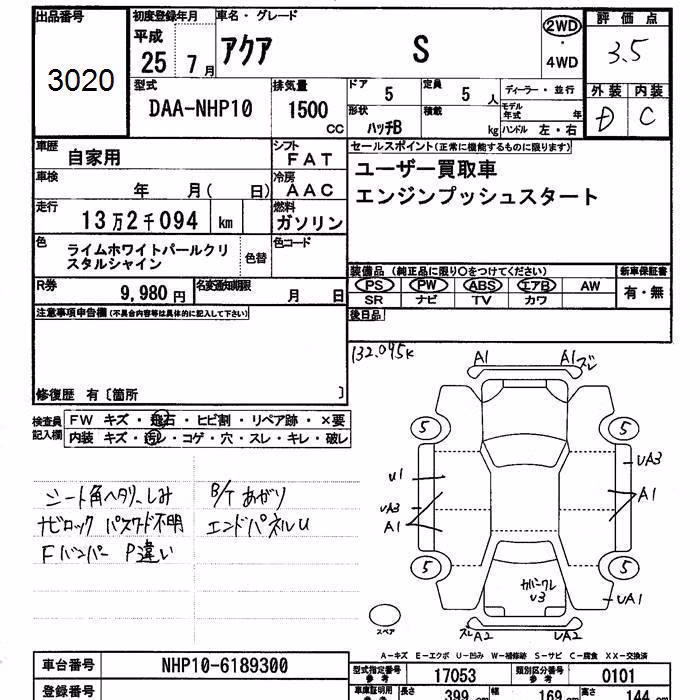 出品番号 初度登録年月 車名・グレード 評価点
3020 平成 25年 7月 アクア S 2WD・4WD 3.5
型式 排気量 ドア 定員 ディーラー・並行 外装 内装
DAA-NHP10 1500 CC 5 5人 モデル年式 年 D C
形状 積載
ハッチB kg ハンドル 左・右
車歴 自家用 シフト FAT セールスポイント(正常に機能するものに限ります)
車検 年 月( 日) 冷房 AAC ユーザー買取車
エンジンプッシュスタート
走行 13万2千094 km 燃料 ガソリン
色 ライムホワイトパールクリスタルシャイン 色替 色コード
装備品(純正品に限り○をつけてください) 新車保証書
R券 9,980円 名変通知期限 月 日 PS PW ABS エアB AW 有・無
SR ナビ TV カワ
注意事項申告欄(不具合内容等は具体的に記入して下さい) 後日品
132.095K
A1 A1ズレ
修復歴 有〔箇所 〕
検査員記入欄 FW キズ・飛石・ヒビ割・リペア跡・×要
内装 キズ・汚レ・コゲ・穴・スレ・キレ・破レ
5 5
U1 UA3
UA3 A1
A1
シート角ヘタリ、しみ B/Tあがり
ナビロック パスワード不明 エンドパネルU
Fバンパー P違い
5 5
U3
UA1
スペア ズレA2 UA2
A-キズ E-エクボ U-凹み W-補修跡 S-サビ C-腐食 XX-交換済
車台番号 NHP10-6189300 型式指定番号 参考 17053 類別区分番号 参考 0101
登録番号 車庫証明用 参考 長さ 399 cm 幅 169 cm 高さ 144 cm